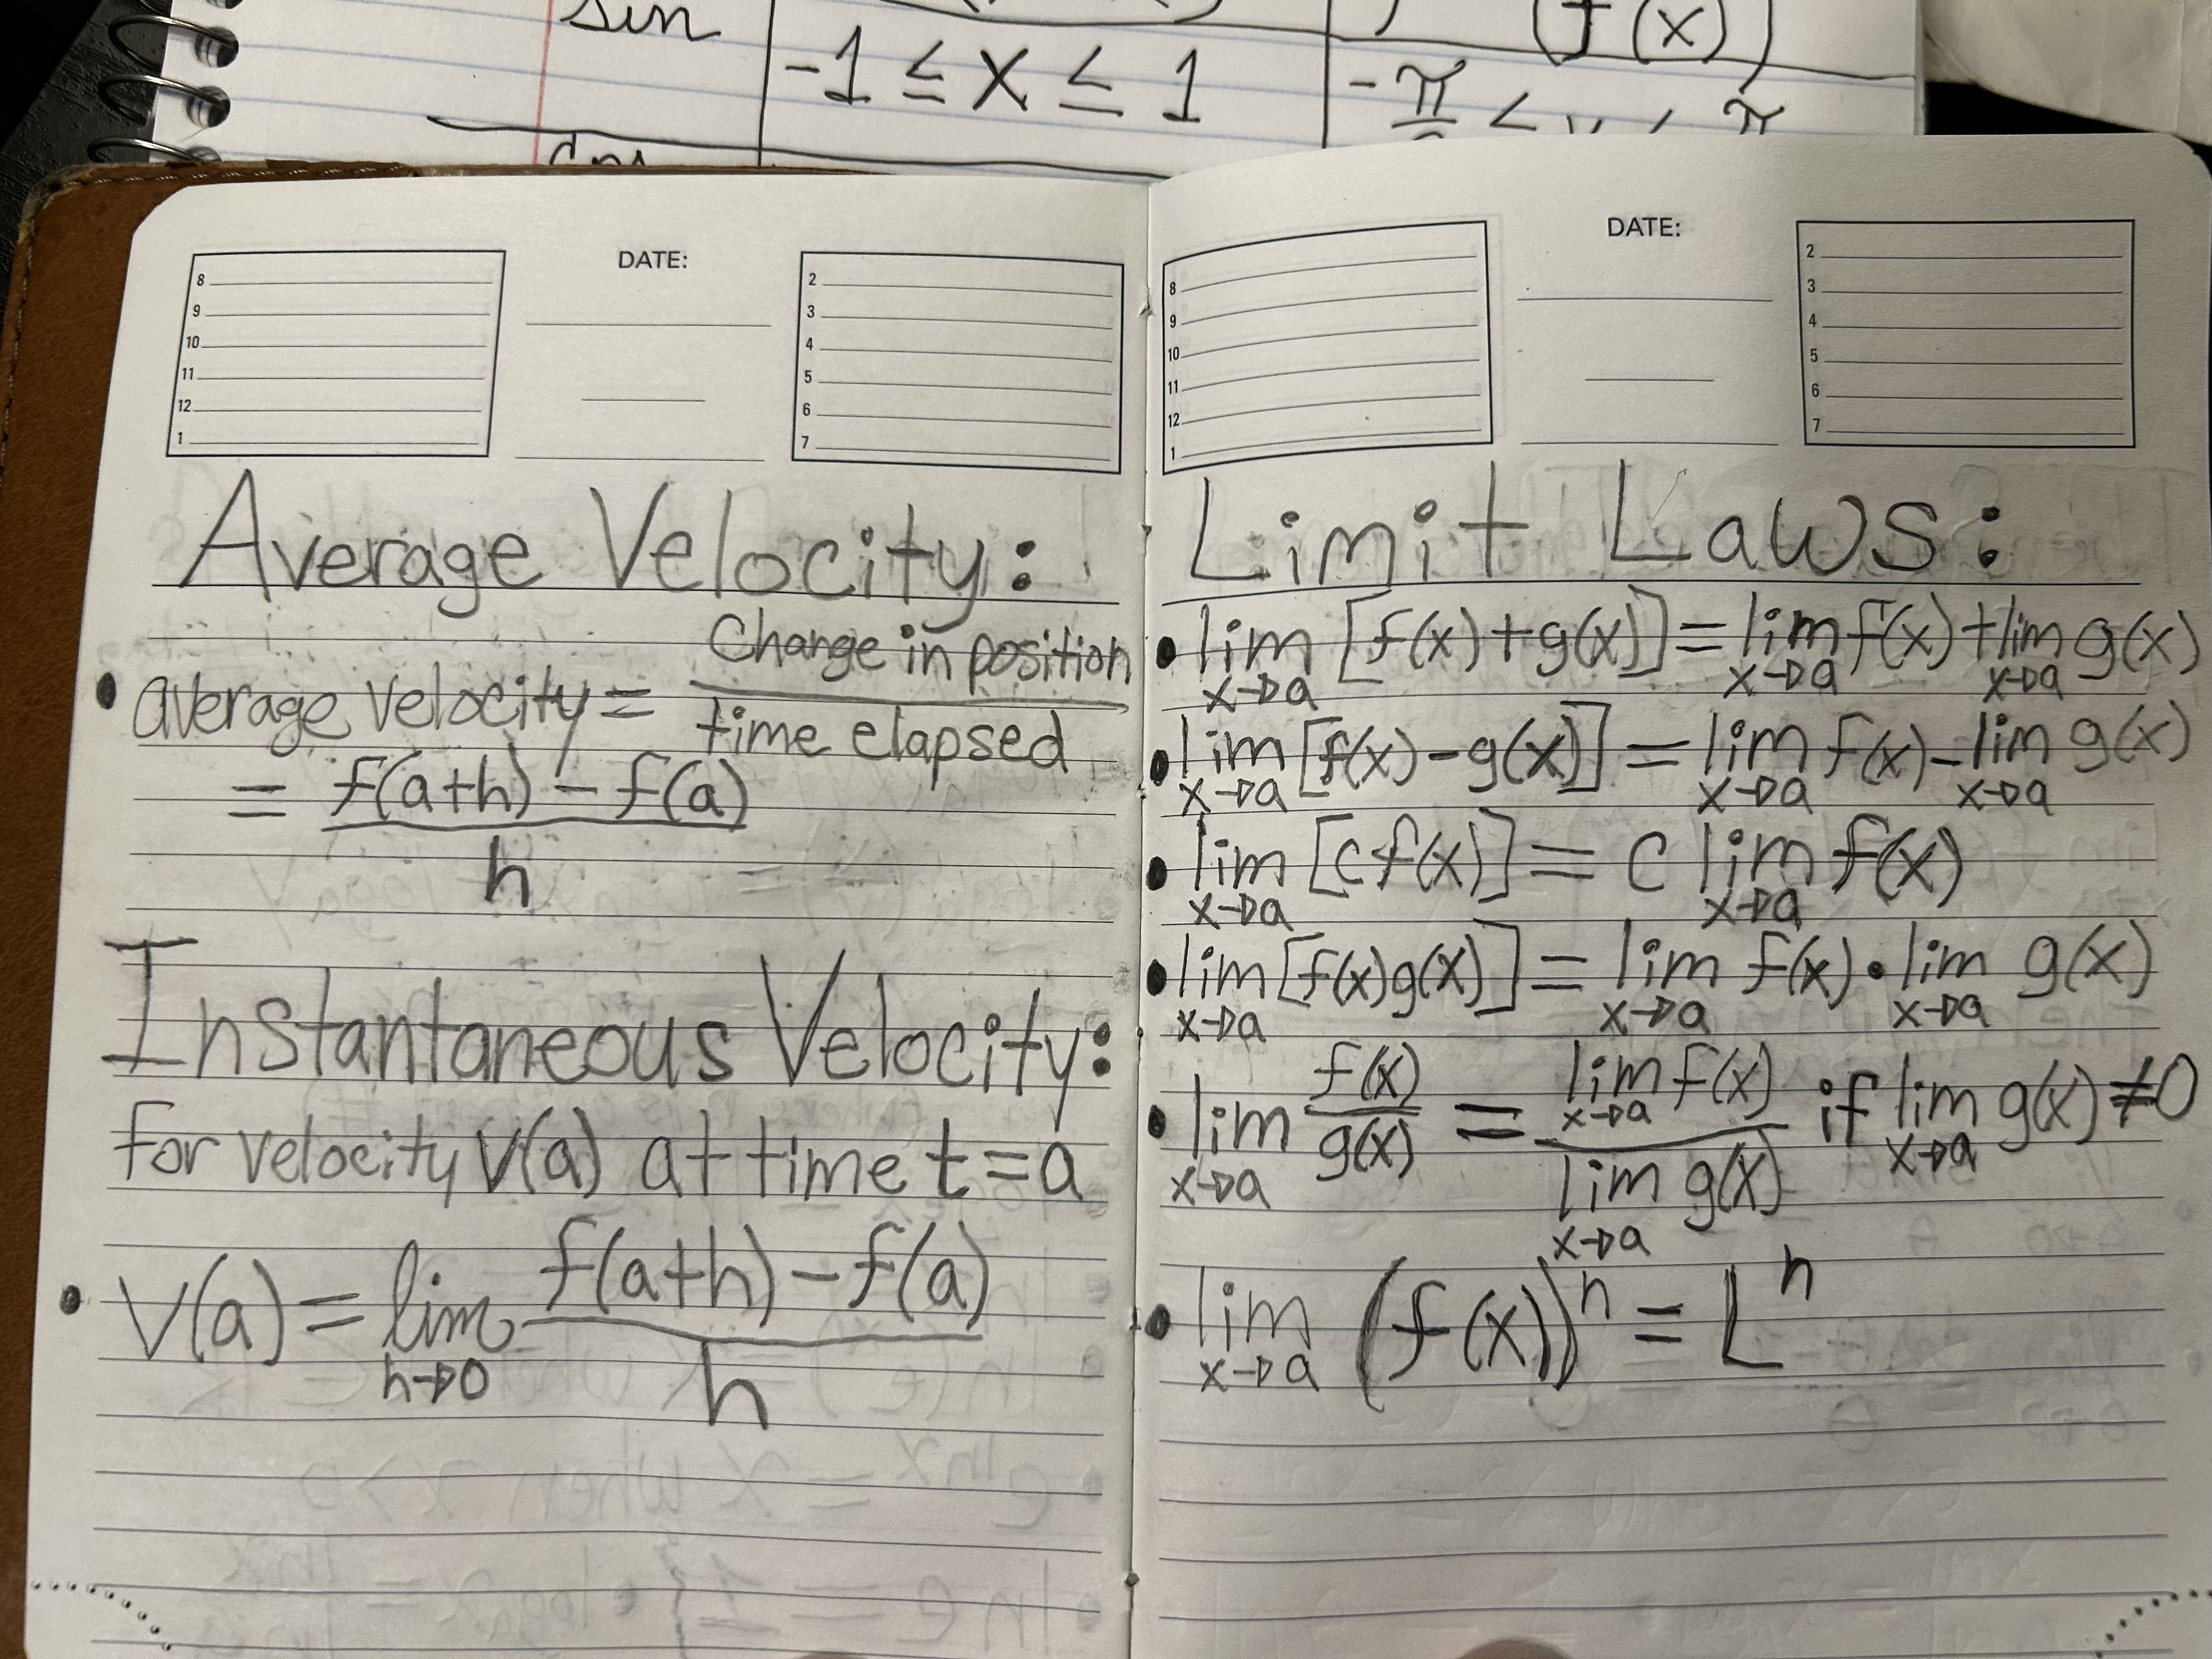 DATE:
8
9
10
11
12
1
2
3
4
5
6
7
Average Velocity:
• average velocity = change in position / time elapsed
= f(a+h) - f(a) / h
Instantaneous Velocity:
for velocity V(a) at time t=a
• V(a) = lim h→0 f(a+h) - f(a) / h
DATE:
8
9
10
11
12
1
2
3
4
5
6
7
Limit Laws:
• lim x→a [f(x)+g(x)] = lim x→a f(x) + lim x→a g(x)
• lim x→a [f(x)-g(x)] = lim x→a f(x) - lim x→a g(x)
• lim x→a [cf(x)] = c lim x→a f(x)
• lim x→a [f(x)g(x)] = lim x→a f(x) • lim x→a g(x)
• lim x→a f(x) / g(x) = lim x→a f(x) / lim x→a g(x) if lim x→a g(x) ≠ 0
• lim x→a (f(x))^n = L^n
-1 ≤ x ≤ 1